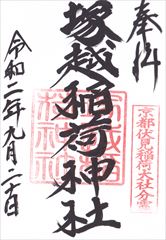 奉拝
京都伏見稲荷大社分霊
塚越稲荷神社
令和二年九月二十日